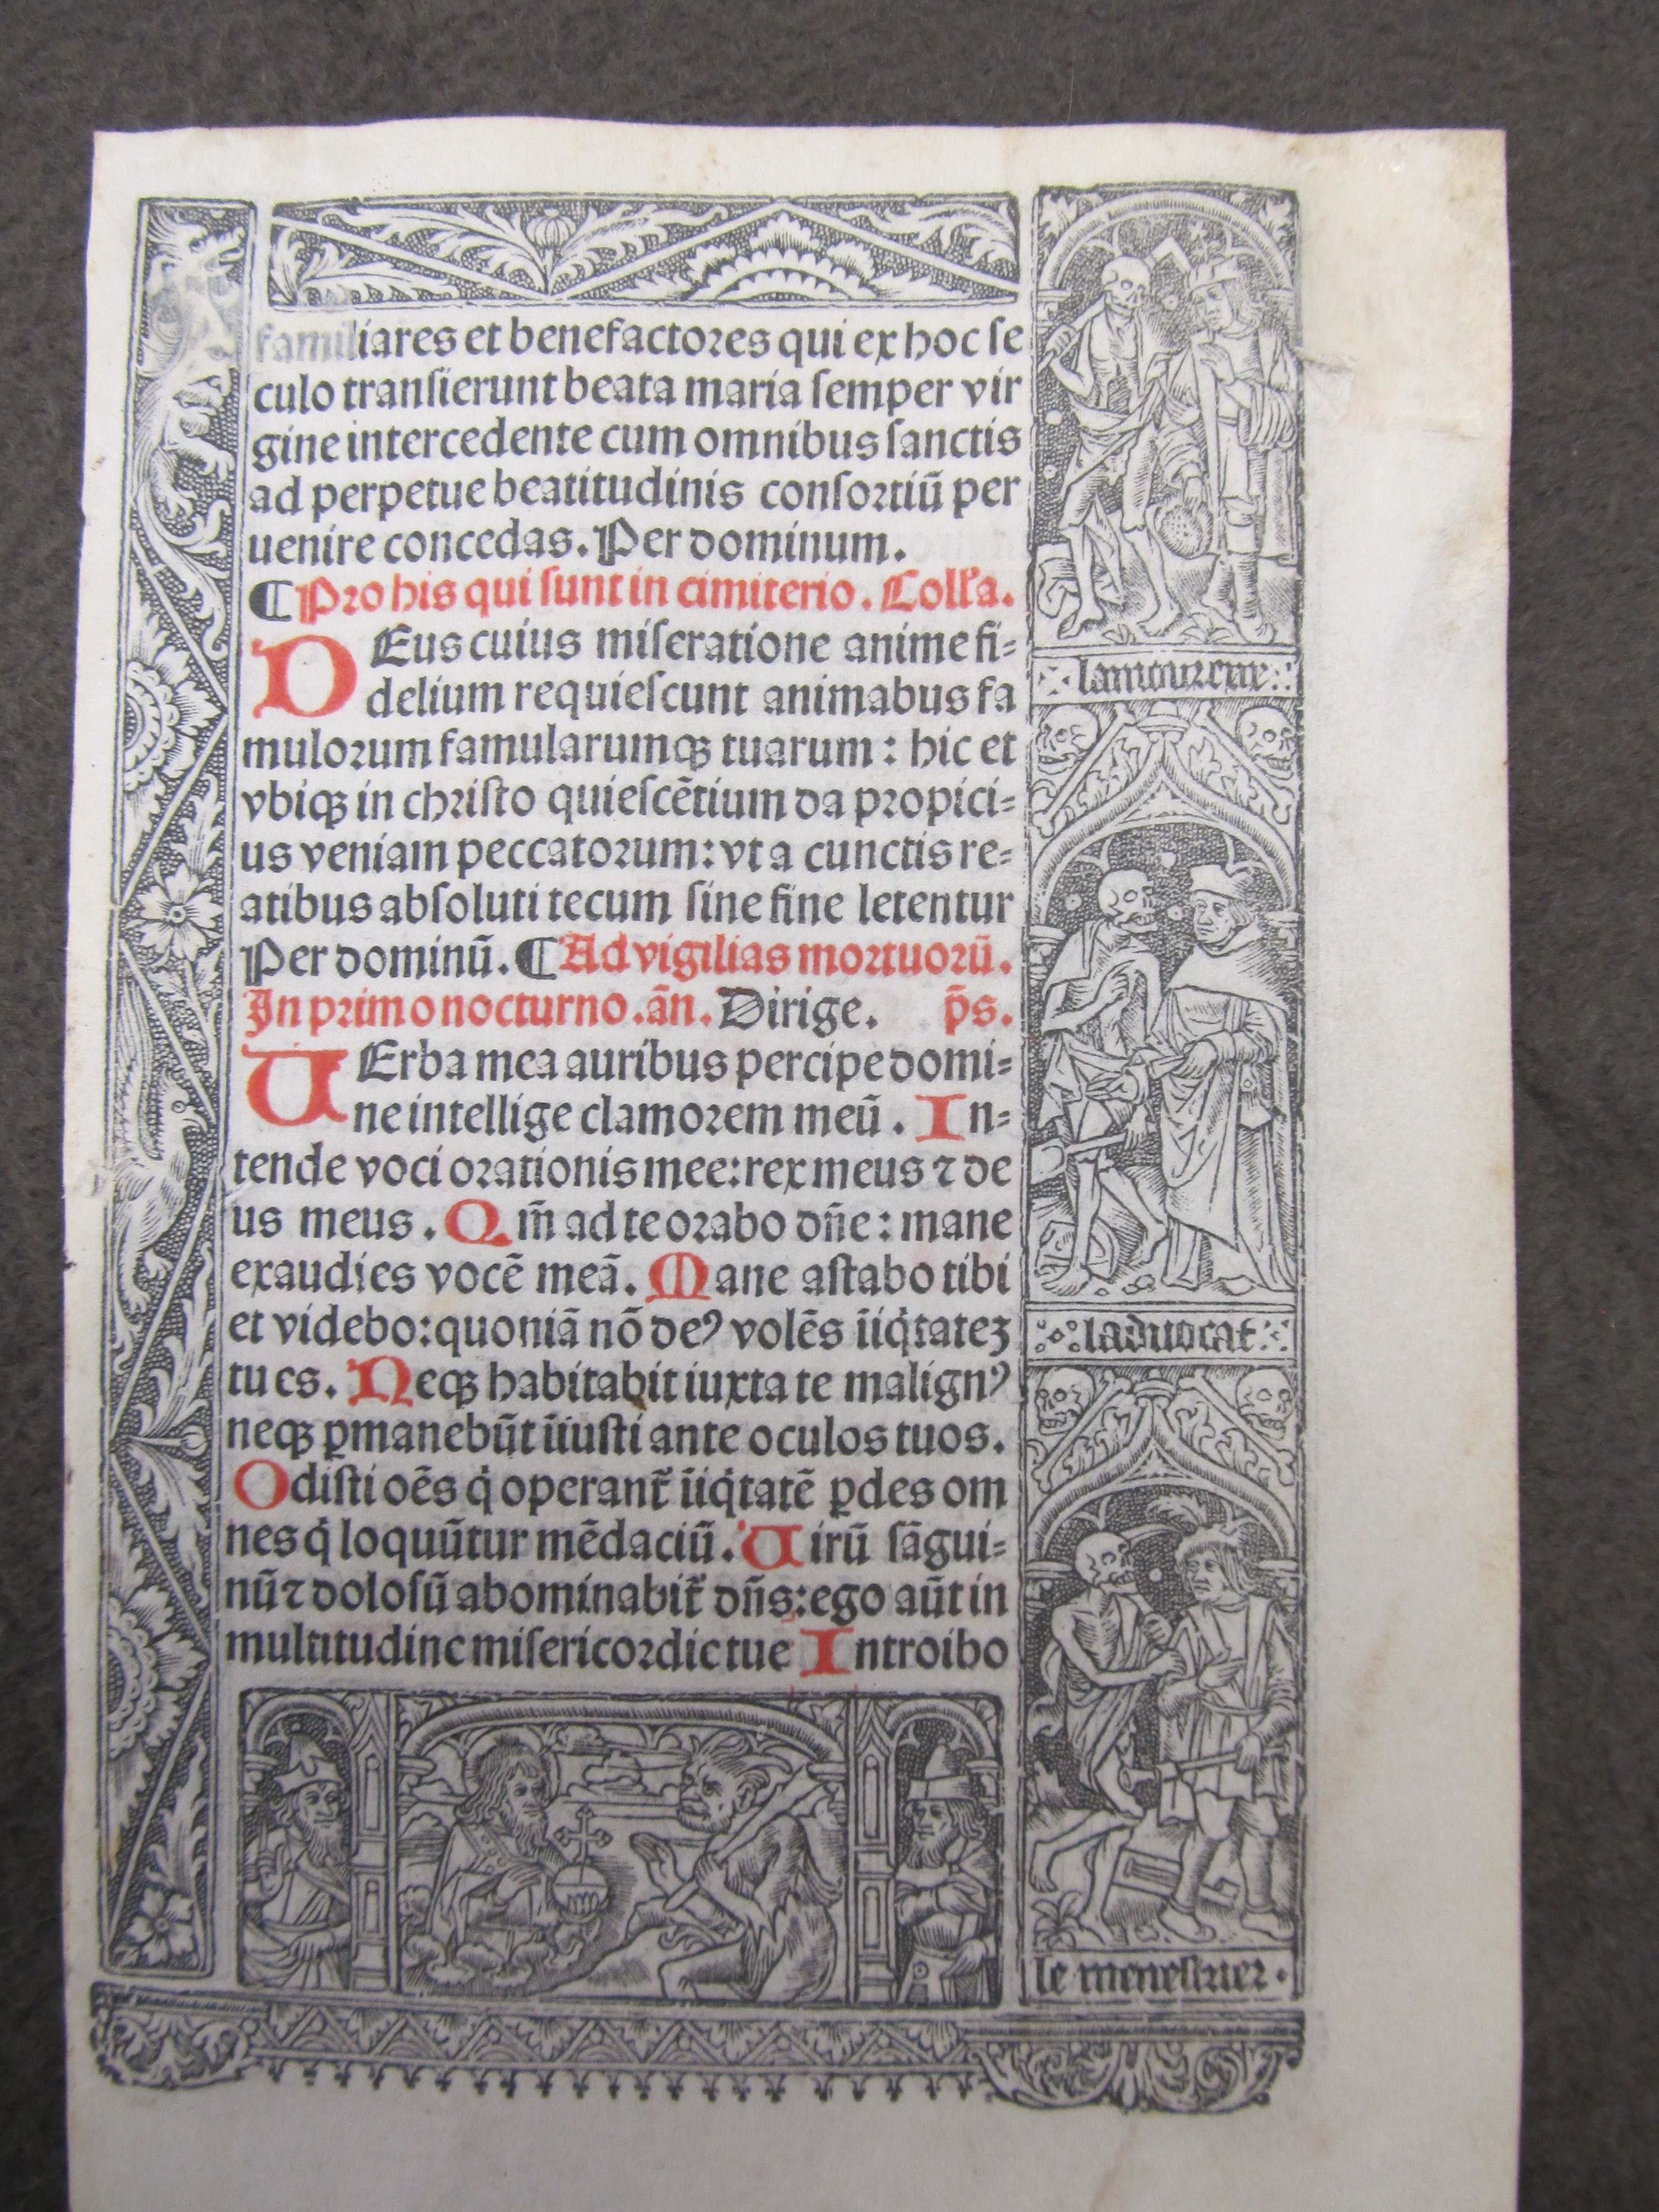 familiares et benefactores qui ex hoc se
culo transierunt beata maria semper vir
gine intercedente cum omnibus sanctis
ad perpetue beatitudinis consortiū per
uenire concedas. Per dominum.
¶ Pro his qui sunt in cimiterio. Coll'a.
DEus cuius miseratione anime fi=
delium requiescunt animabus fa
mulorum famularumqꝫ tuarum : hic et
vbiqꝫ in christo quiescētium da propici=
us veniam peccatorum: vt a cunctis re=
atibus absoluti tecum sine fine letentur
Per dominū. ¶ Ad vigilias mortuorū.
In primo nocturno. añ. Dirige. p̄s.
UErba mea auribus percipe domi=
ne intellige clamorem meū . In=
tende voci orationis mee: rex meus ⁊ de
us meus . Qm̄ ad te orabo dñe : mane
exaudies vocē meā. Mane astabo tibi
et videbo: quoniā nō deꝰ volēs īiq̇tatez
tu es. Neqꝫ habitabit iuxta te malignꝰ
neqꝫ ꝑmanebūt īiusti ante oculos tuos.
Odisti oēs q̇ operant᷑ īiq̇tatē ꝑdes om
nes q̇ loquūtur mēdaciū. Uirū sāgui=
nū ⁊ dolosū abominabit᷑ dñs: ego aūt in
multitudine misericordie tue Introibo
lamoureux
laduocat
le menestrier.